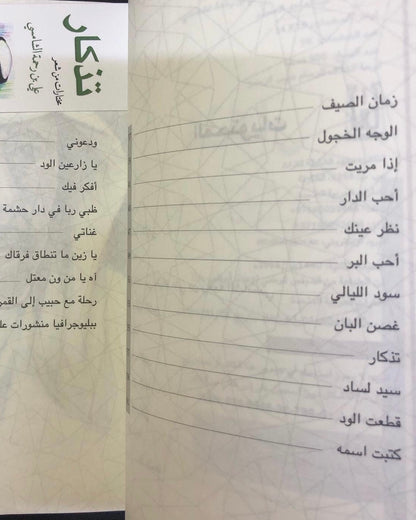 زمان الصيف
الوجه الخجول
إذا مريت
أحب الدار
نظر عينك
أحب البر
سود الليالي
غصن البان
تذكار
سيد لساد
قطعت الود
كتبت اسمه
تذكار
مختارات من شعر
علي بن رحمة الشامسي
ودعوني
يا زارعين الود
أفكر فيك
ظبي ربا في دار حشمة
غناتي
يا زين ما تنطاق فرقاك
آه يا من ون معتل
رحلة مع حبيب إلى القمر
ببليوجرافيا منشورات